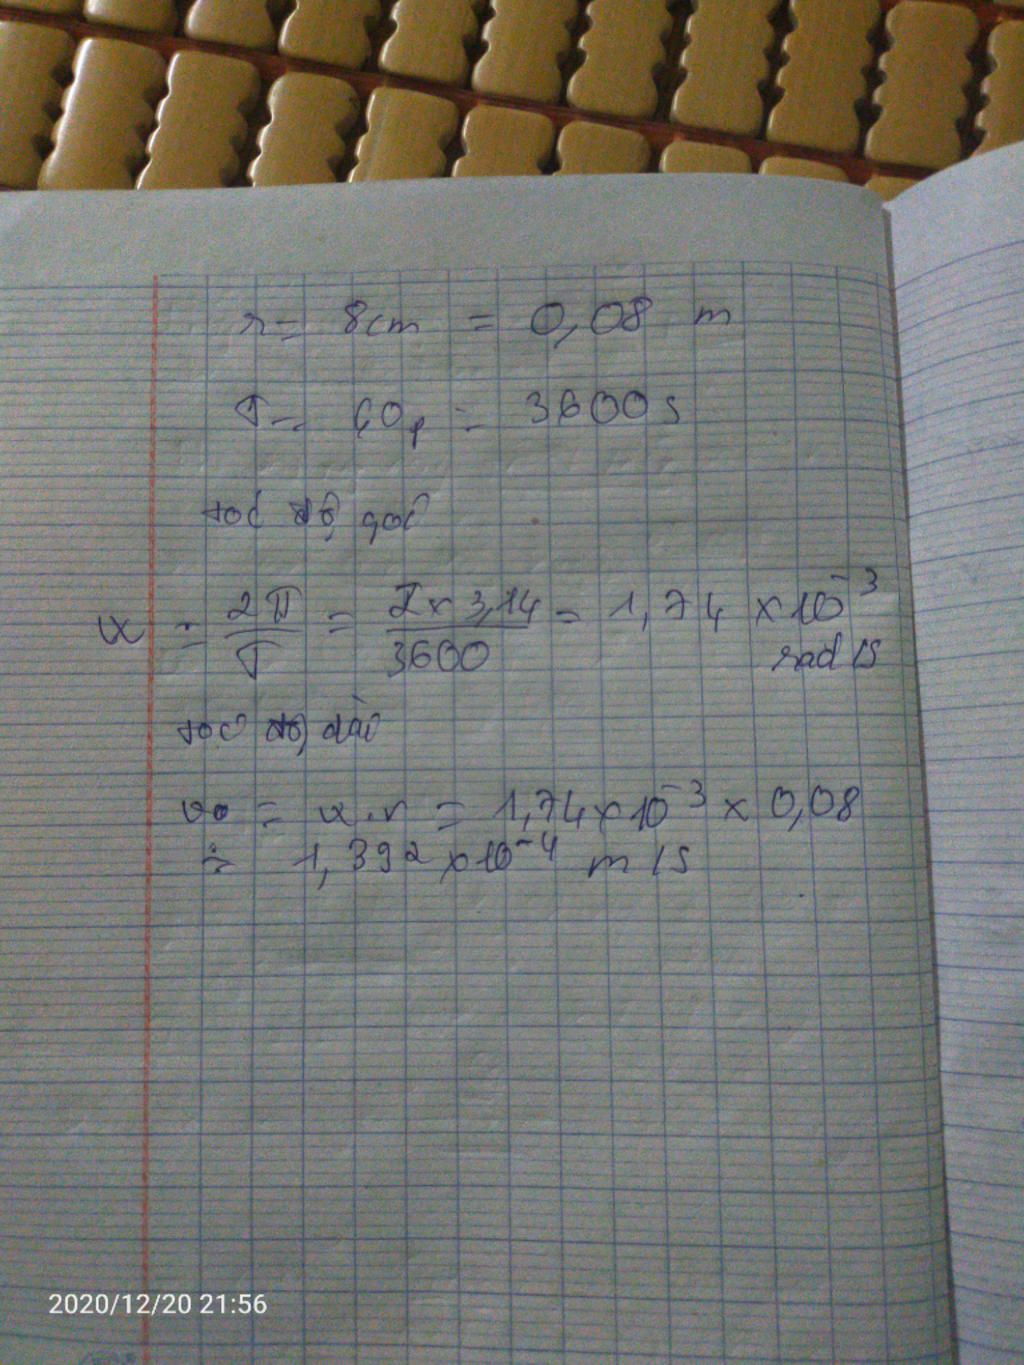 r = 8cm = 0,08 m
T = 60p = 3600s
tốc độ góc
ω = 2π / T = 2 x 3,14 / 3600 = 1,74 x 10^-3 rad/s
tốc độ dài
v = ω.r = 1,74 x 10^-3 x 0,08
= 1,392 x 10^-4 m/s
2020/12/20 21:56